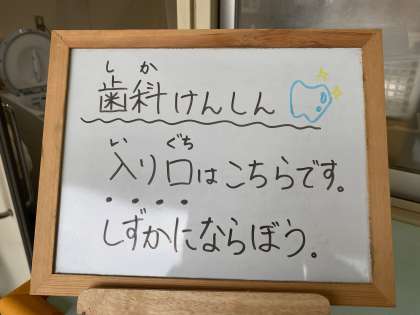 しか
歯科けんしん
い ぐち
入り口はこちらです。
しずかにならぼう。